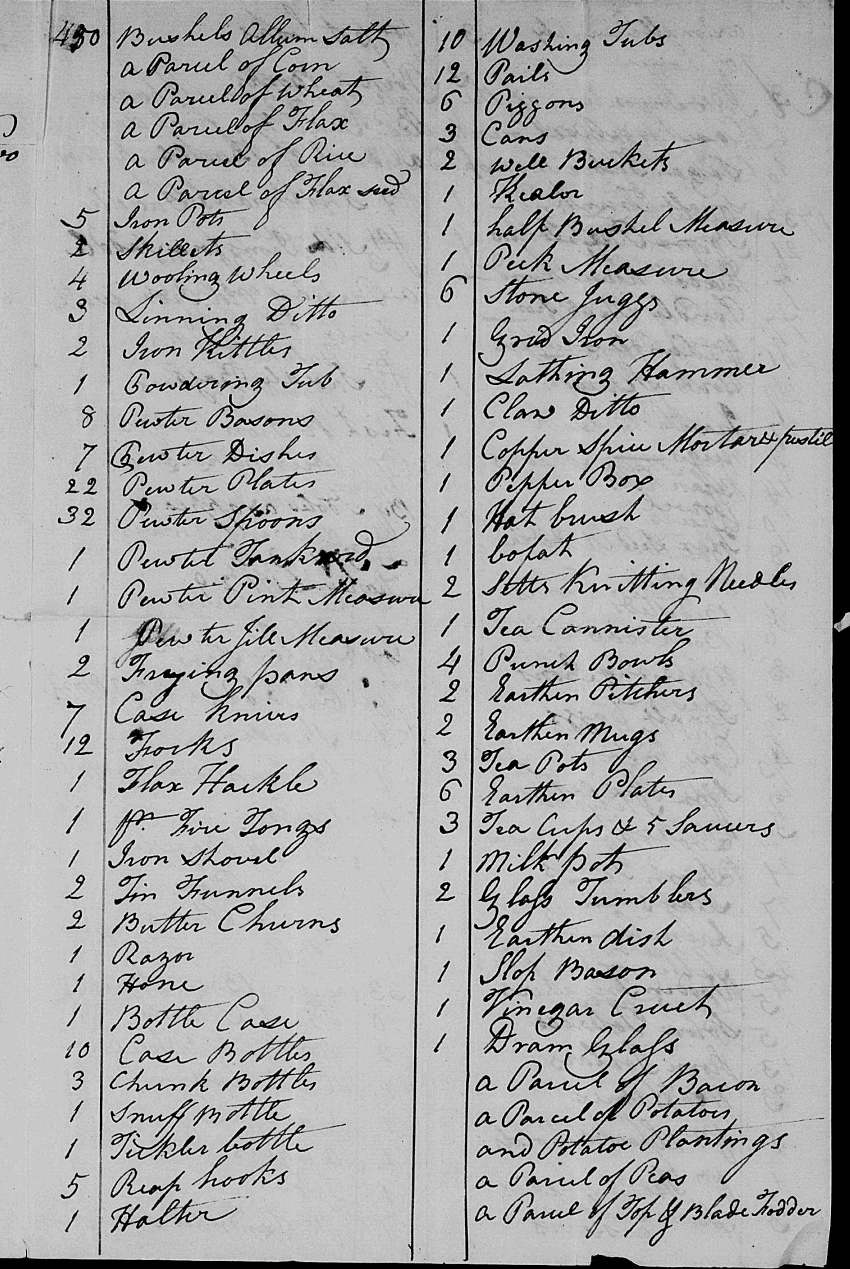 450 Bushels Allum Salt
a Parcel of Corn
a Parcel of Wheat
a Parcel of Flax
a Parcel of Rice
a Parcel of Flax seed
5 Iron Pots
2 Skillets
4 Wooling Wheels
3 Linning Ditto
2 Iron Kittles
1 Powdering Tub
8 Pewter Basons
7 Pewter Dishes
22 Pewter Plates
32 Pewter Spoons
1 Pewter Tankard
1 Pewter Pint Measure
1 Pewter Jill Measure
2 Frying pans
7 Case knives
12 Forks
1 Flax Hackle
1 pr. Fire Tongs
1 Iron Shovel
2 Tin Funnels
2 Butter Churns
1 Razor
1 Hone
1 Bottle Case
10 Case Bottles
3 Chunk Bottles
1 Snuff Bottle
1 Tickler bottle
5 Reap hooks
1 Halter
10 Washing Tubs
12 Pails
6 Piggons
3 Cans
2 well Buckets
1 Kealor
1 half Bushel Measure
1 Peck Measure
6 Stone Juggs
1 Grid Iron
1 Lathing Hammer
1 Claw Ditto
1 Copper Spice Mortar & pestil
1 Pepper Box
1 Hat brush
1 bofat
2 Setts Knitting Needles
1 Tea Cannister
4 Punch Bowls
2 Earthen Pitchers
2 Earthen Mugs
3 Tea Pots
6 Earthen Plates
3 Tea Cups & 5 Saucers
1 Milk pot
2 Glass Tumblers
1 Earthen dish
1 Slop Bason
1 Vinegar Cruet
1 Dram Glass
a Parcel of Bacon
a Parcel of Potatoes
and Potatoe Plantings
a Parcel of Peas
a Parcel of Top & Blade Fodder